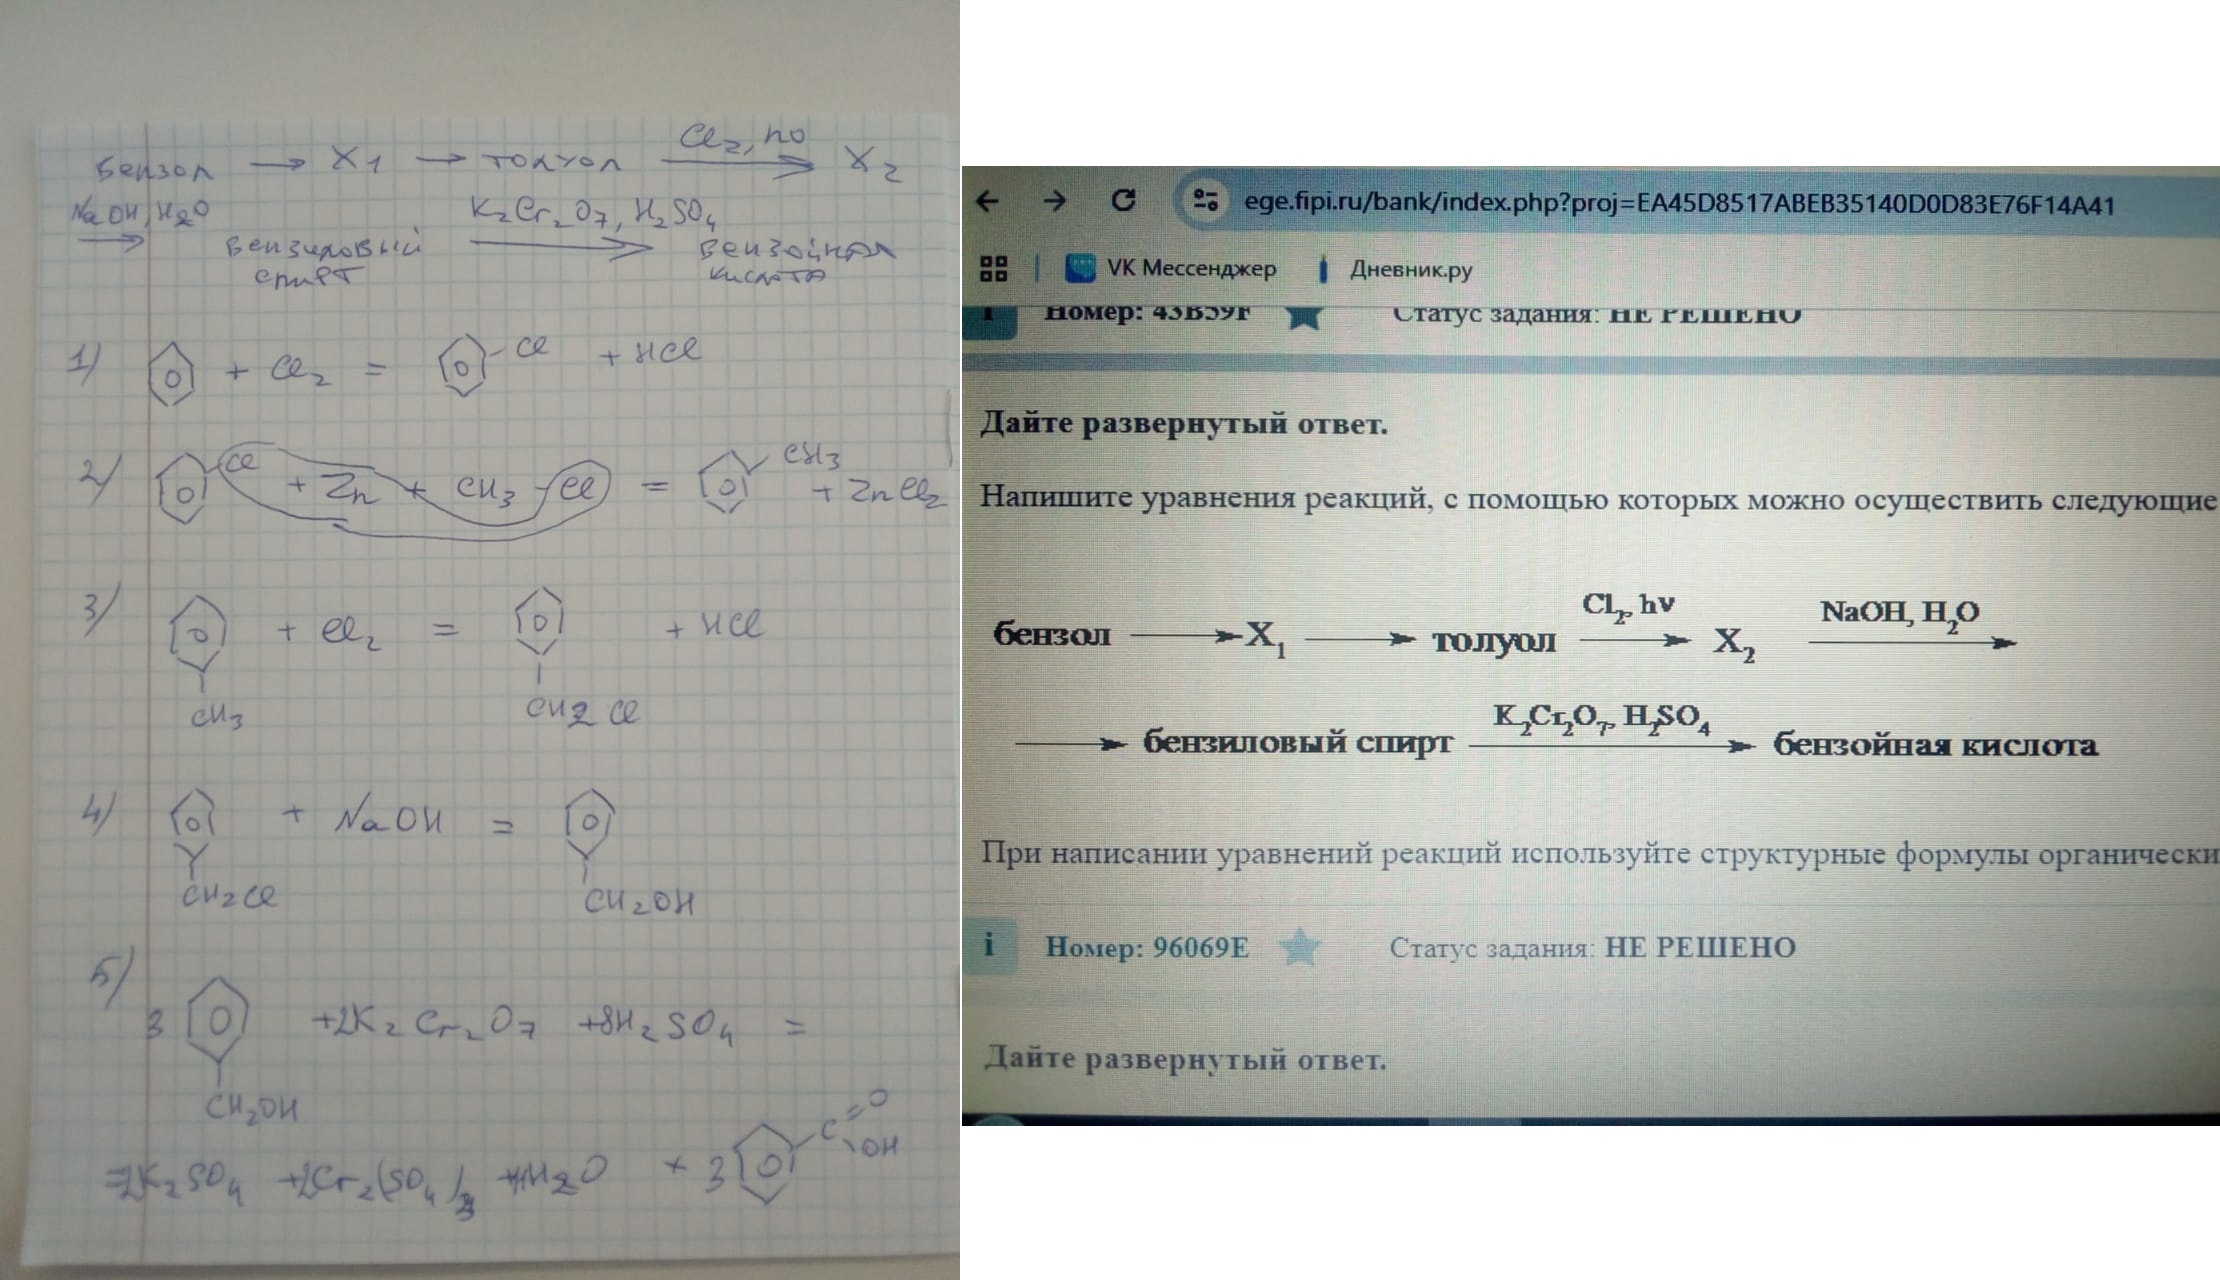 Бензол → X1 → толуол Cl2, hν → X2
NaOH, H2O → Бензиловый спирт K2Cr2O7, H2SO4 → Бензойная кислота
1) + Cl2 = Cl + HCl
2) Cl + Zn + CH3 - Cl = CH3 + ZnCl2
3) CH3 + Cl2 = CH2Cl + HCl
4) CH2Cl + NaOH = CH2OH
5) 3 CH2OH + 2K2Cr2O7 + 8H2SO4 =
= 2K2SO4 + 2Cr2(SO4)3 + H2O + 3 C =O OH
ege.fipi.ru/bank/index.php?proj=EA45D8517ABEB35140D0D83E76F14A41
VK Мессенджер Дневник.ру
Номер: 43B39F Статус задания: НЕ РЕШЕНО
Дайте развернутый ответ.
Напишите уравнения реакций, с помощью которых можно осуществить следующие
бензол → X1 → толуол Cl2, hν → X2 NaOH, H2O →
→ бензиловый спирт K2Cr2O7, H2SO4 → бензойная кислота
При написании уравнений реакций используйте структурные формулы органически
i Номер: 96069E Статус задания: НЕ РЕШЕНО
Дайте развернутый ответ.